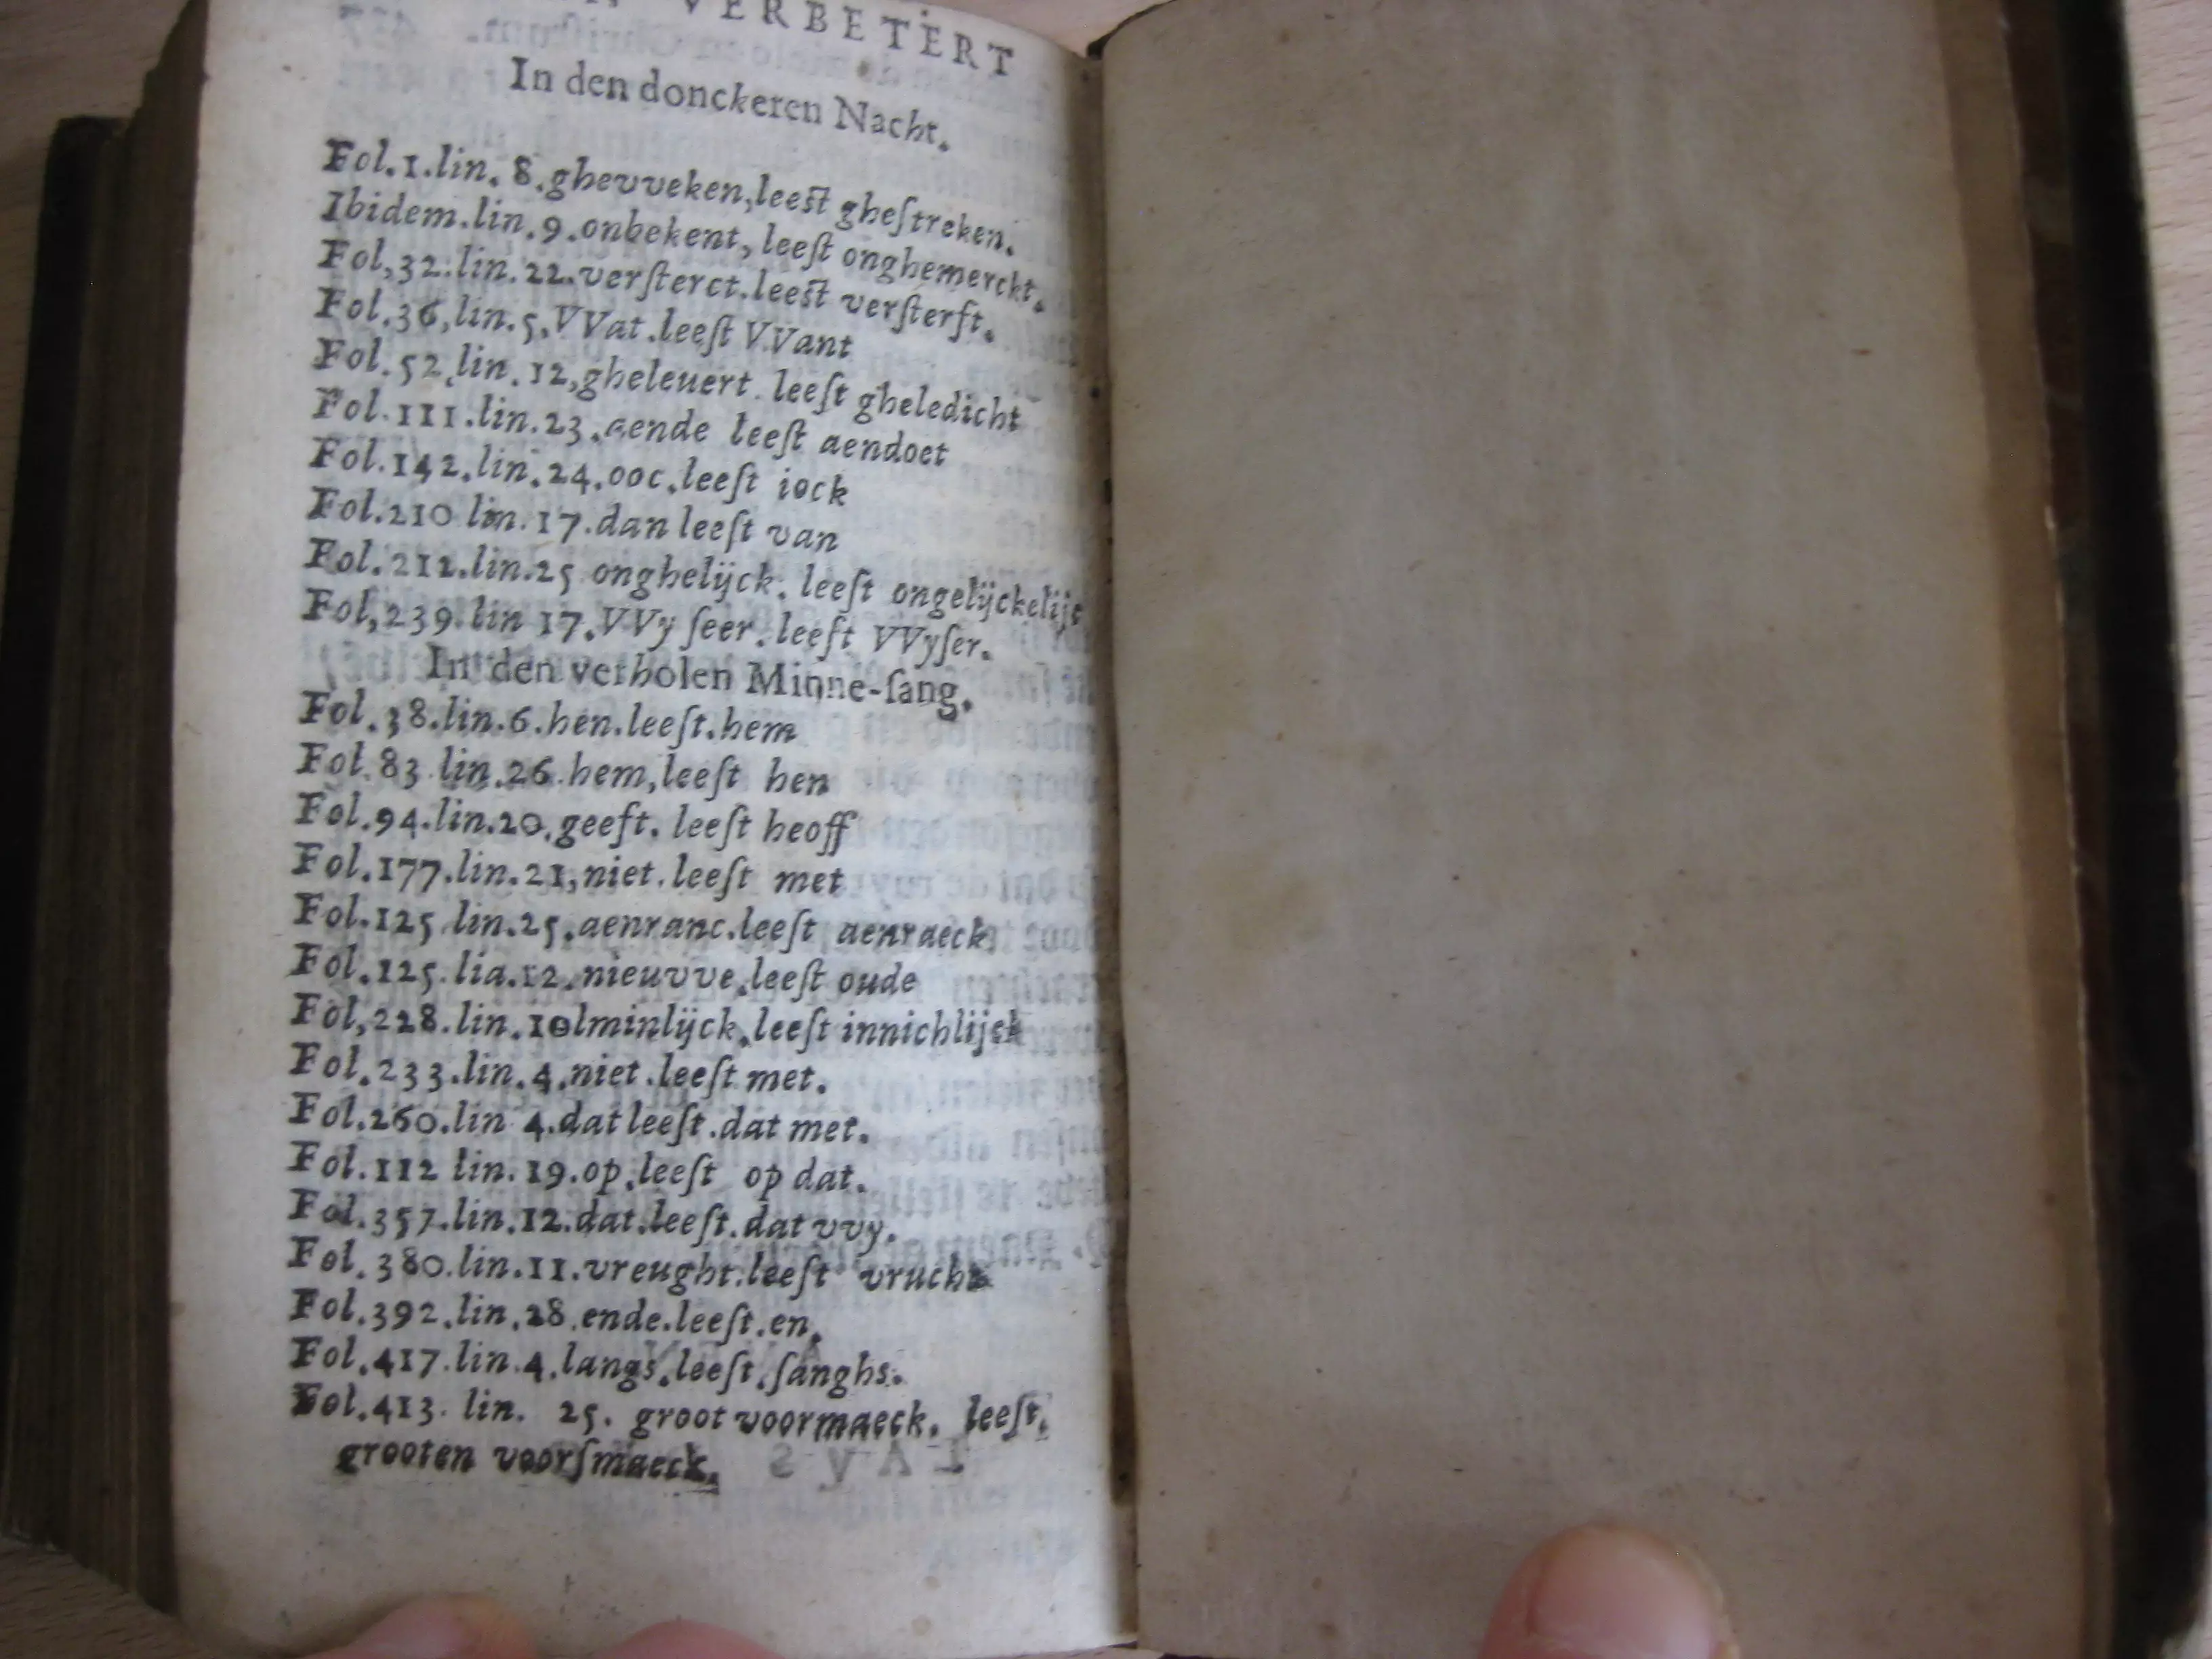 VERBETERT
In den donckeren Nacht.
Fol.1.lin. 8.ghevveken,leest gheſtreken.
Ibidem.lin.9.onbekent, leeſt onghemerckt.
Fol,32.lin.22.verſterct.leest verſterft.
Fol.36,lin.5,VVat.leeſt VVant
Fol.52,lin.12,gheleuert. leeſt gheledicht
Fol.111.lin.23.aende leeſt aendoet
Fol.142.lin.24.ooc.leeſt iock
Fol.210 lin.17.dan leeſt van
Fol.212.lin.25 onghelijck. leeſt ongelijckelijc
Fol,239.lin 17.VVy ſeer.leeſt VVyſer.
In den verholen Minne-ſang.
Fol.38.lin.6.hen.leeſt.hem
Fol.83.lin.26.hem,leeſt hen
Fol.94.lin.20.geeft. leeſt heoff
Fol.177.lin.21,niet.leeſt met
Fol.125.lin.25.aenranc.leeſt aenraeck
Fol.125.lia.12.nieuvve.leeſt oude
Fol,228.lin.10lminlijck,leeſt innichlijck
Fol.233.lin.4.niet.leeſt met.
Fol.260.lin 4.dat leeſt.dat met.
Fol.112 lin.19.op.leeſt op dat.
Fol.357.lin.12.dat.leeſt.dat vvy.
Fol.380.lin.11.vreught.leeſt vrucht
Fol.392.lin.28.ende.leeſt.en.
Fol.417.lin.4.langs.leeſt.ſanghs.
Fol.413. lin. 25. groot voormaeck. leeſt.
grooten voorſmaeck.